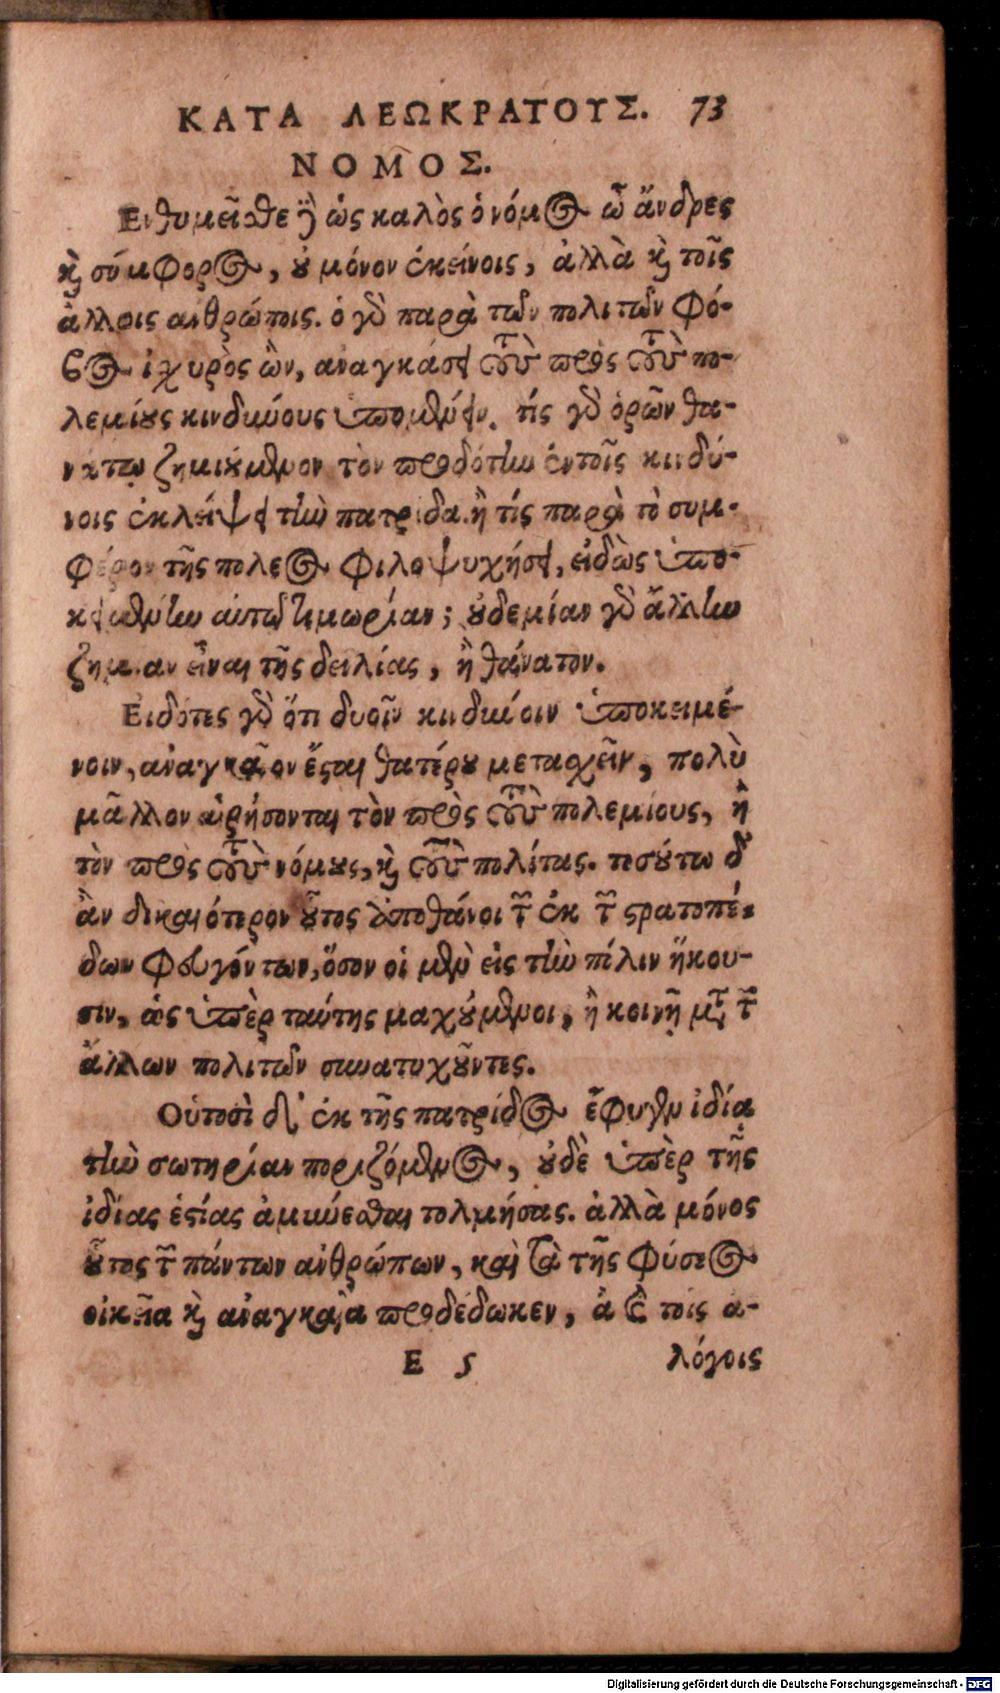 ΚΑΤΑ ΛΕΩΚΡΑΤΟΥΣ. 73
ΝΟΜΟΣ.
Ενθυμεῖσθε γὰρ ὡς καλὸς ὁ νόμος ὦ ἄνδρες
καὶ σύμφορος, οὐ μόνον ἐκείνοις, ἀλλὰ καὶ τοῖς
ἄλλοις ἀνθρώποις. ὁ γὰρ παρὰ τῶν πολιτῶν φό-
βος ἰσχυρὸς ὢν, ἀναγκάσει τοὺς πρὸς τοὺς πο-
λεμίους κινδύνους ὑπομένειν. τίς γὰρ ὁρῶν θα-
νάτῳ ζημιούμενον τὸν προδότην ἐν τοῖς κινδύ-
νοις ἐκλείψει τὴν πατρίδα. ἢ τίς παρὰ τὸ συμ-
φέρον τῆς πόλεος φιλοψυχήσει, εἰδὼς ὑπο-
κειμένην αὐτῷ τιμωρίαν; οὐδεμίαν γὰρ ἄλλην
ζημίαν εἶναι τῆς δειλίας, ἢ θάνατον.
Εἰδότες γὰρ ὅτι δυοῖν κινδύνοιν ὑποκειμέ-
νοιν, ἀναγκαῖον ἔσται θατέρου μετασχεῖν, πολὺ
μᾶλλον αἱρήσονται τὸν πρὸς τοὺς πολεμίους, ἢ
τὸν πρὸς τοὺς νόμους, καὶ τοὺς πολίτας. τοσούτῳ δ'
ἂν δικαιότερον οὗτος ἀποθάνοι τῶν ἐκ τῶν στρατοπέ-
δων φευγόντων, ὅσον οἱ μὲν εἰς τὴν πόλιν ἥκου-
σιν, ὡς ὑπὲρ ταύτης μαχούμενοι, ἢ κοινῇ μετὰ τῶν
ἄλλων πολιτῶν συνατυχοῦντες.
Οὑτοσὶ δὲ ἐκ τῆς πατρίδος ἔφυγεν ἰδίᾳ
τὴν σωτηρίαν ποριζόμενος, οὐδὲ ὑπὲρ τῆς
ἰδίας ἑστίας ἀμύνεσθαι τολμήσας. ἀλλὰ μόνος
οὗτος τῶν πάντων ἀνθρώπων, καὶ τὰ τῆς φύσεος
οἰκεῖα καὶ ἀναγκαῖα προδέδωκεν, ἃ καὶ τοῖς ἀ-
Ε 5 λόγοις
Digitalisierung gefördert durch die Deutsche Forschungsgemeinschaft - DFG